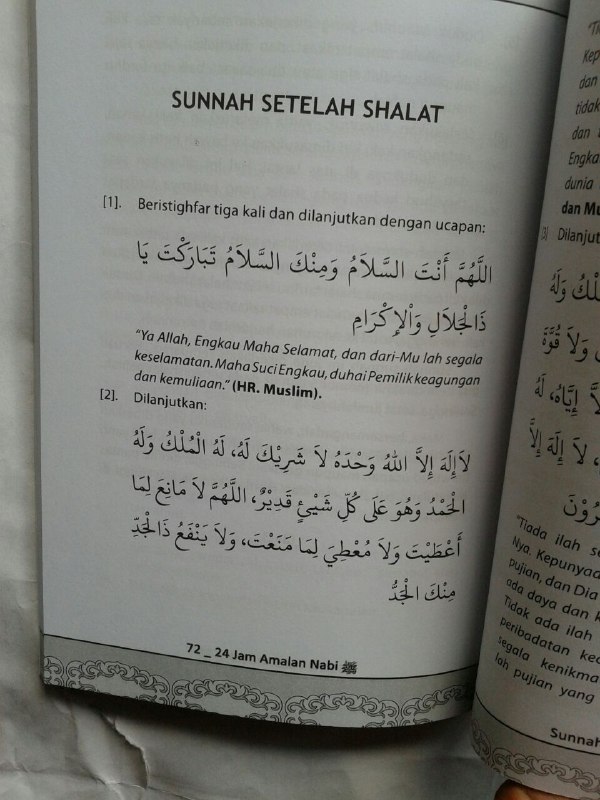 SUNNAH SETELAH SHALAT
[1]. Beristighfar tiga kali dan dilanjutkan dengan ucapan:
اللَّهُمَّ أَنْتَ السَّلاَمُ وَمِنْكَ السَّلاَمُ تَبَارَكْتَ يَا
ذَالْجَلاَلِ وَاْلإِكْرَامِ
"Ya Allah, Engkau Maha Selamat, dan dari-Mu lah segala
keselamatan. Maha Suci Engkau, duhai Pemilik keagungan
dan kemuliaan." (HR. Muslim).
[2]. Dilanjutkan:
لاَإِلَهَ إِلاَّ اللهُ وَحْدَهُ لاَ شَرِيْكَ لَهُ، لَهُ الْمُلْكُ وَلَهُ
الْحَمْدُ وَهُوَ عَلَى كُلِّ شَيْئٍ قَدِيْرٌ، اللَّهُمَّ لاَ مَانِعَ لِمَا
أَعْطَيْتَ وَلاَ مُعْطِيَ لِمَا مَنَعْتَ، وَلاَ يَنْفَعُ ذَالْجَدِّ
مِنْكَ الْجَدُّ
72 _ 24 Jam Amalan Nabi ﷺ
dan
tidak
dan
Engka
dunia
dan Mu
Dilanjut
وَلَهُ
وَلاَ قُوَّةَ
إِيَّاهُ، لَهُ
، لاَ إِلَهَ إِلاَّ
"Tiada ilah se
Nya. Kepunyaa
pujian, dan Dia
ada daya dan k
Tidak ada ilah
peribadatan kec
segala kenikma
lah pujian yang
Sunnah